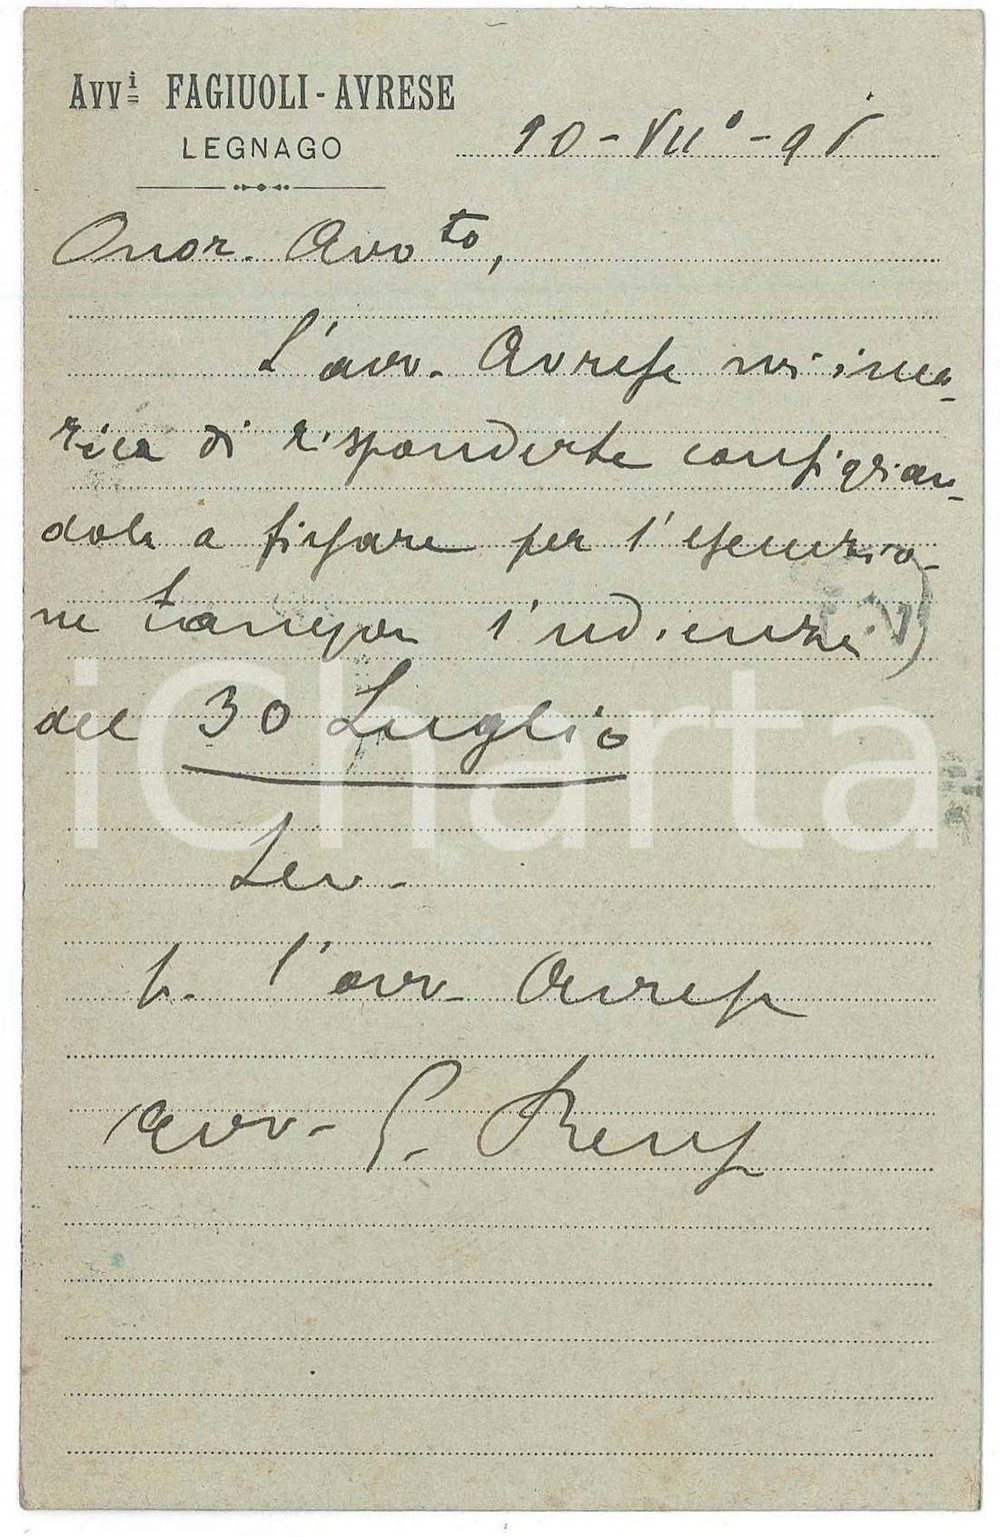 Avvⁱ FAGIUOLI-AVRESE
LEGNAGO
10-VII°-95
Onor. Avvto,
L'avv. Avrese m'inca-
rica di risponderle consiglian-
dola a fissare per l'esecuzio-
ne l'udienza
del 30 Luglio
p. l'avv. Avrese
avv. G.
iCharta